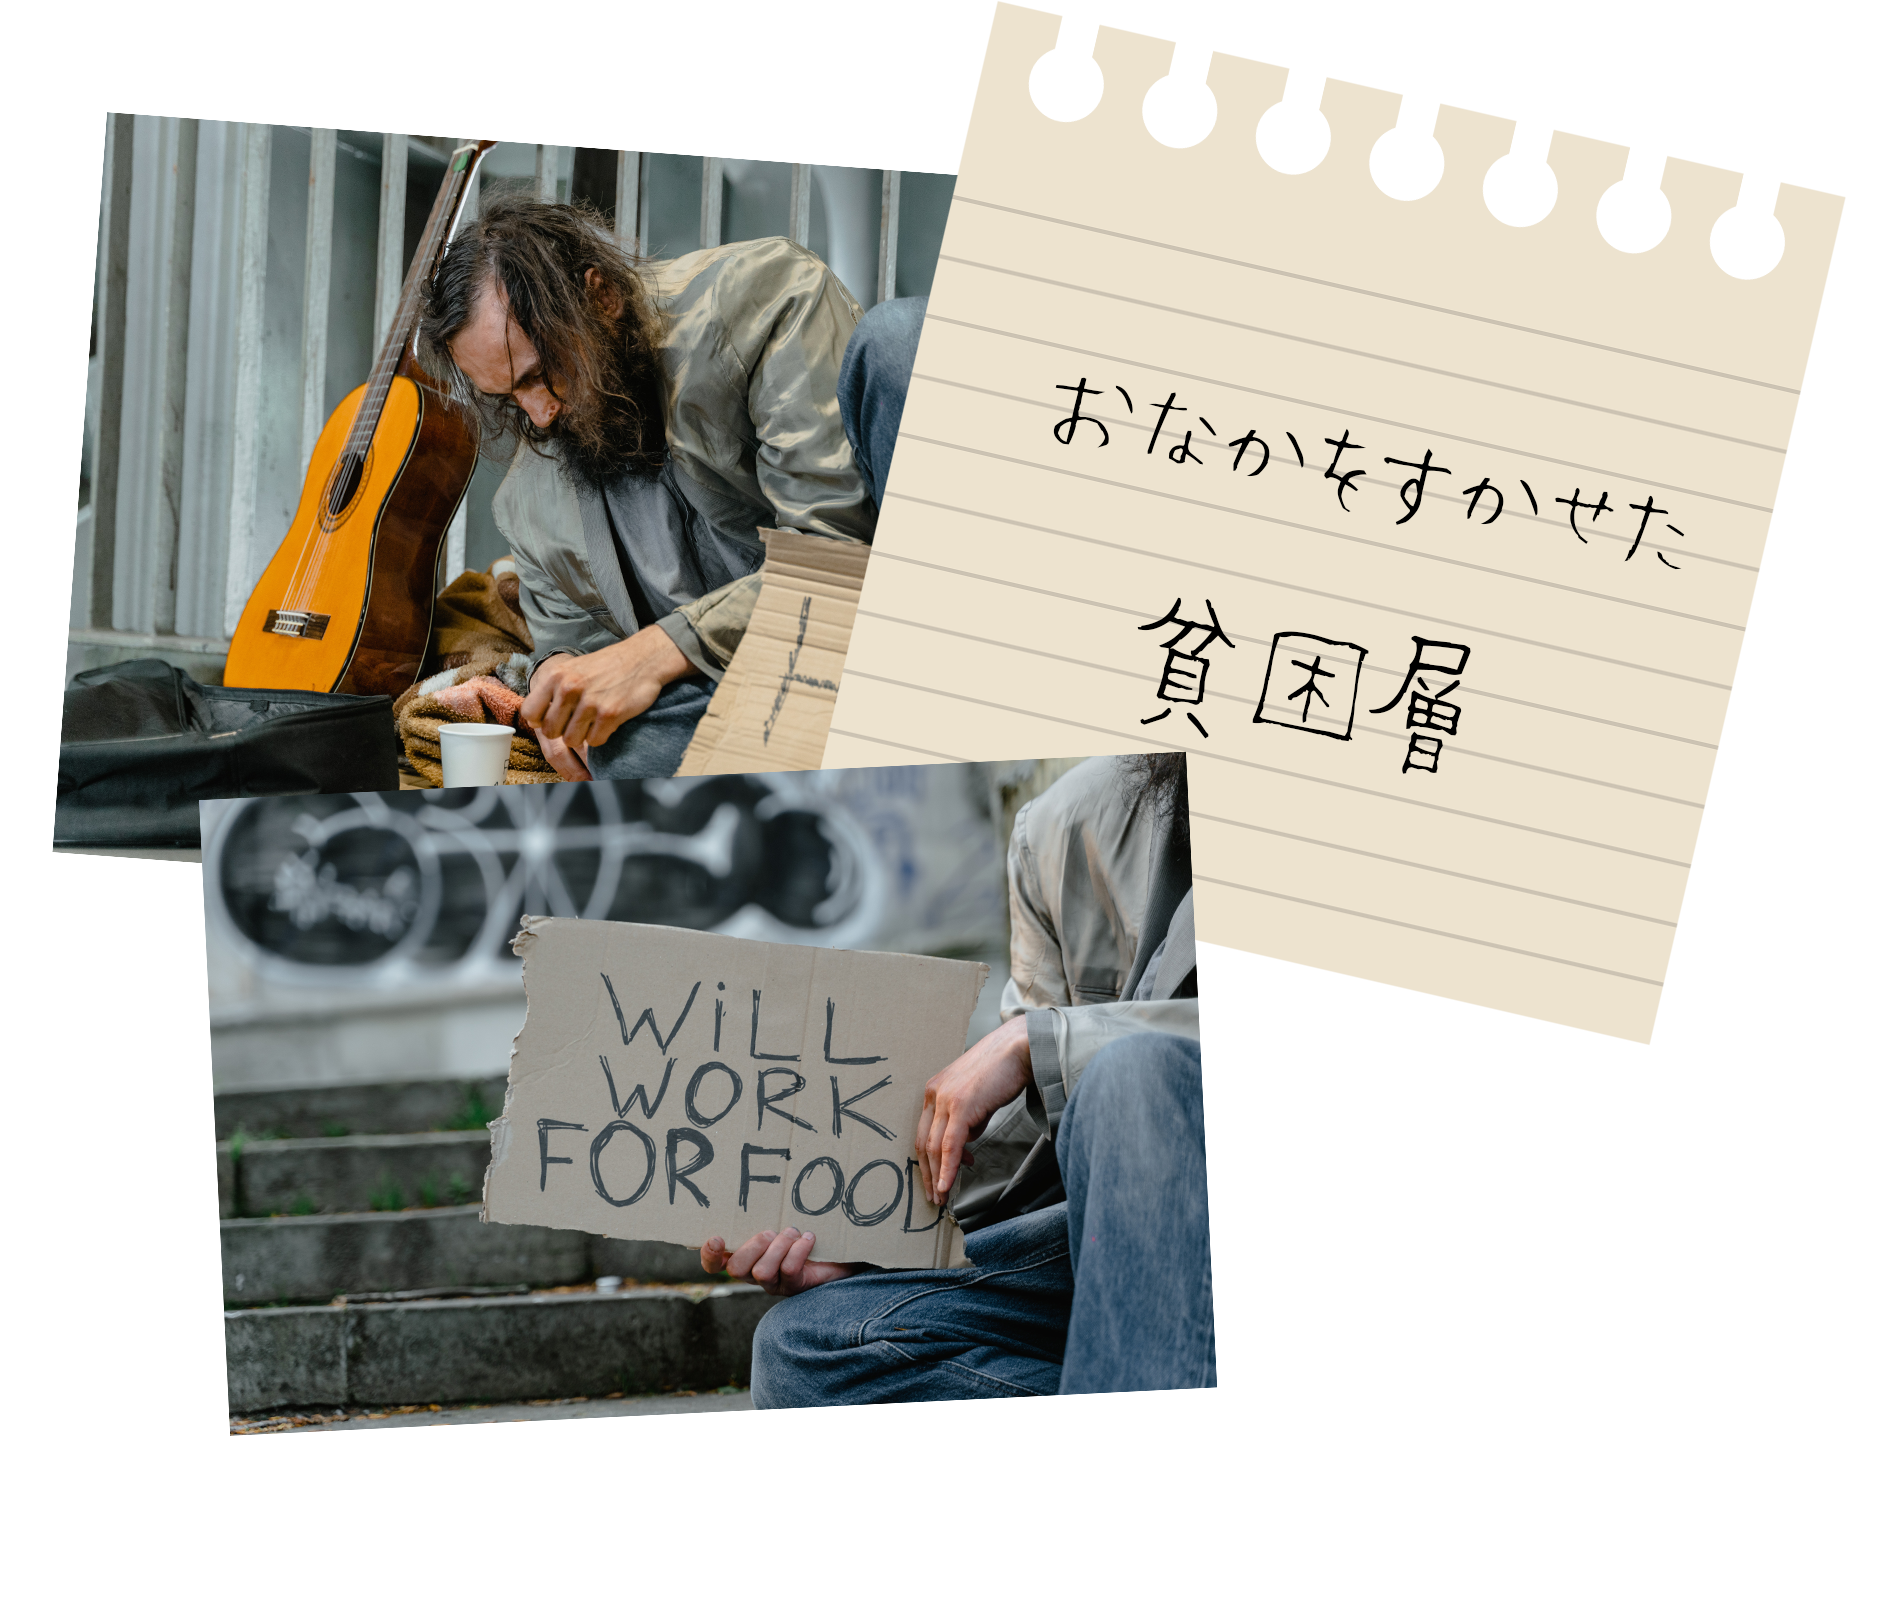 おなかをすかせた
貧困層
WiLL
WORK
FOR FOOD